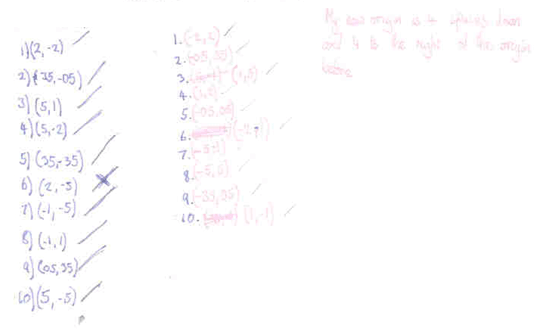 1) (2, -2)
2) (35, -05)
3) (5, 1)
4) (5, -2)
5) (35, -35)
6) (2, -5)
7) (-1, -5)
8) (-1, 1)
9) (05, 35)
10) (5, -5)
1. (-2, 2)
2. (-05, 35)
3. (1, 5)
4.
5. (-05, 05)
6. (-2, -1)
7. (-5, -1)
8. (-5, 5)
9. (-35, 35)
10. (1, -1)
My new origin is 4 squares down
and 4 to the right of the origin
before